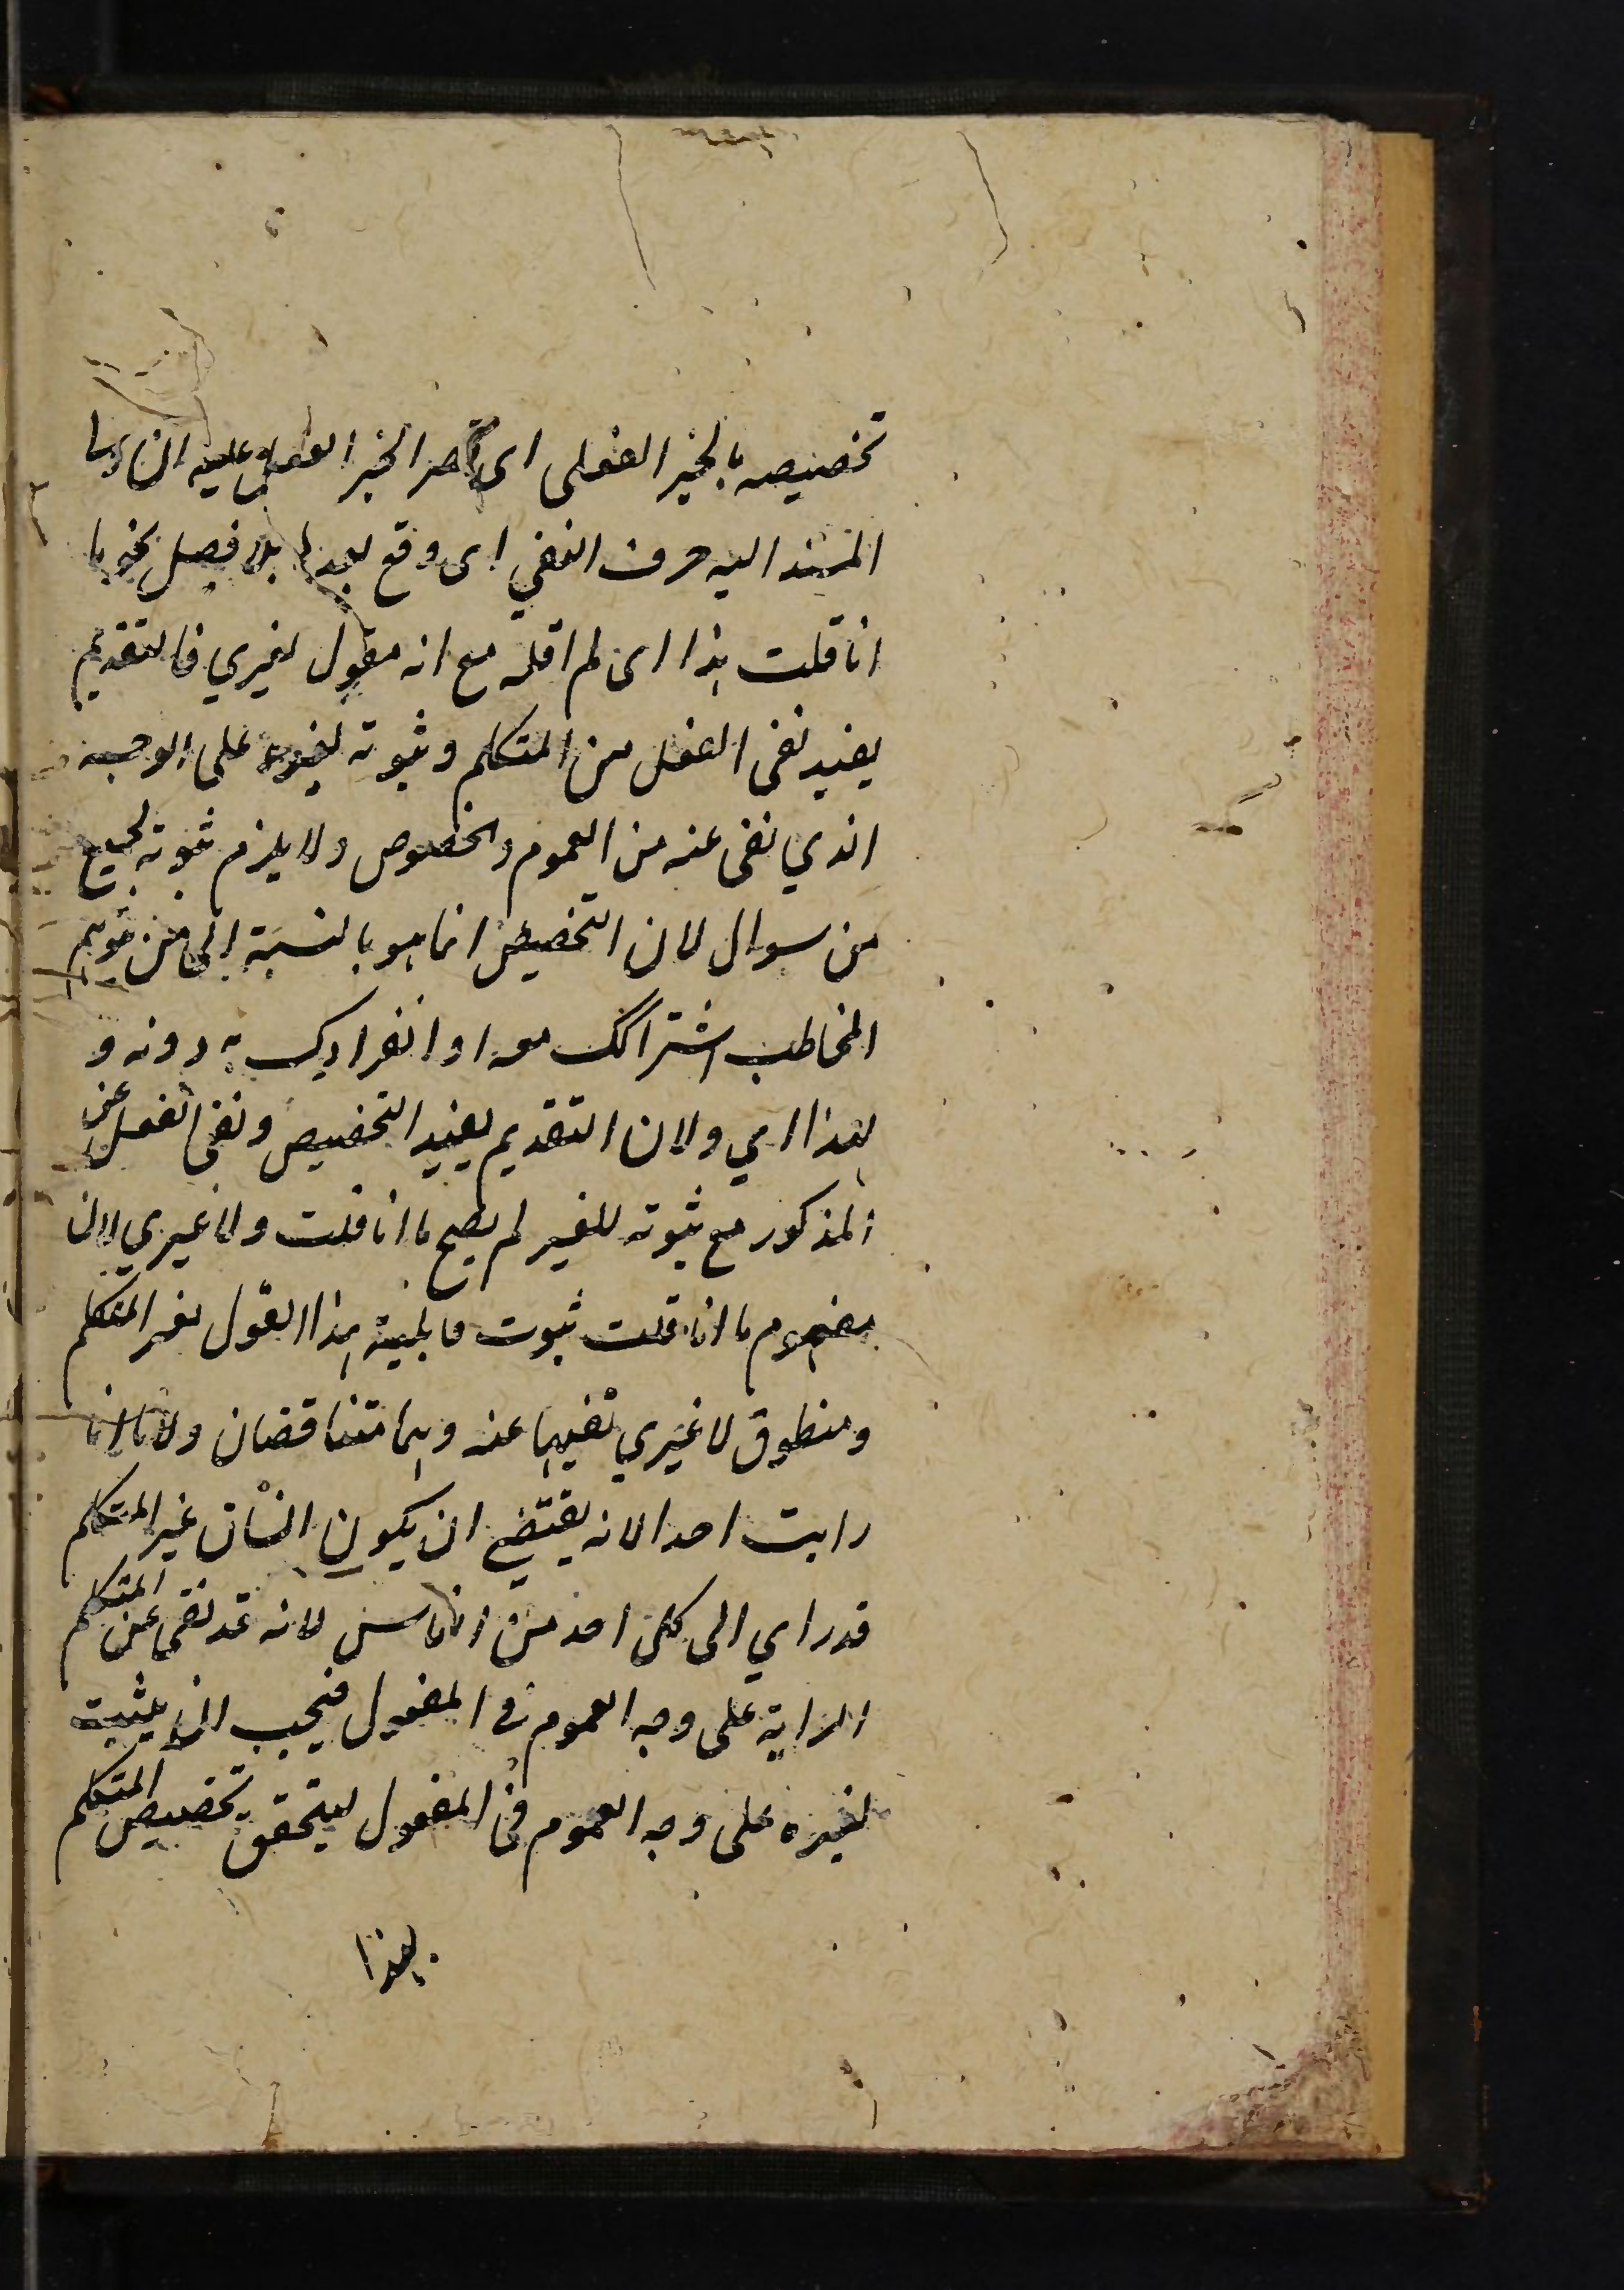 تخصيصه بالخبر الفعلى اى قصر الخبر الفعلى عليه ان ولى
المسند اليه حرف النفي اى وقع بعدها بلا فصل نحو ما
انا قلت هذا اى لم اقله مع انه مقول لغيري فالتقديم
يفيد نفى الفعل عن المتكلم وثبوته لغيره على الوجه
الذي نفى عنه من العموم والخصوص ولا يلزم ثبوته لجميع
من سواك لان التخصيص انما هو بالنسبة الى من توهم
المخاطب اشتراكك معه او انفرادك به دونه و
لهذا اي ولان التقديم يفيد التخصيص ونفى الفعل عن
المذكور مع ثبوته للغير لم يصح ما انا قلت ولا غيري لان
مفهوم ما انا قلت ثبوت قابلية هذا القول لغير المتكلم
ومنطوق لا غيري نفيها عنه وهما متناقضان ولا ما انا
رايت احدا لانه يقتضي ان يكون انسان غير المتكلم
قد راي الى كل احد من الناس لانه قد نفى عن المتكلم
الراية على وجه العموم في المفعول فيجب ان يثبت
لغيره على وجه العموم في المفعول ليتحقق تخصيص المتكلم
بهذا